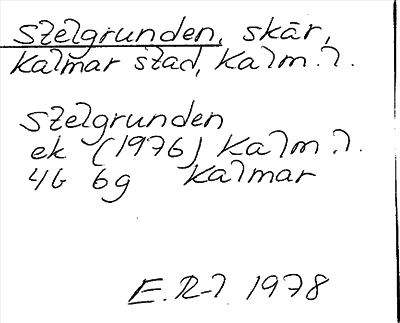 Stelgrunden, skär,
Kalmar stad, Kalm.l.
Stelgrunden
ek (1976) Kalm.l.
4G 6g Kalmar
E.R-l 1978